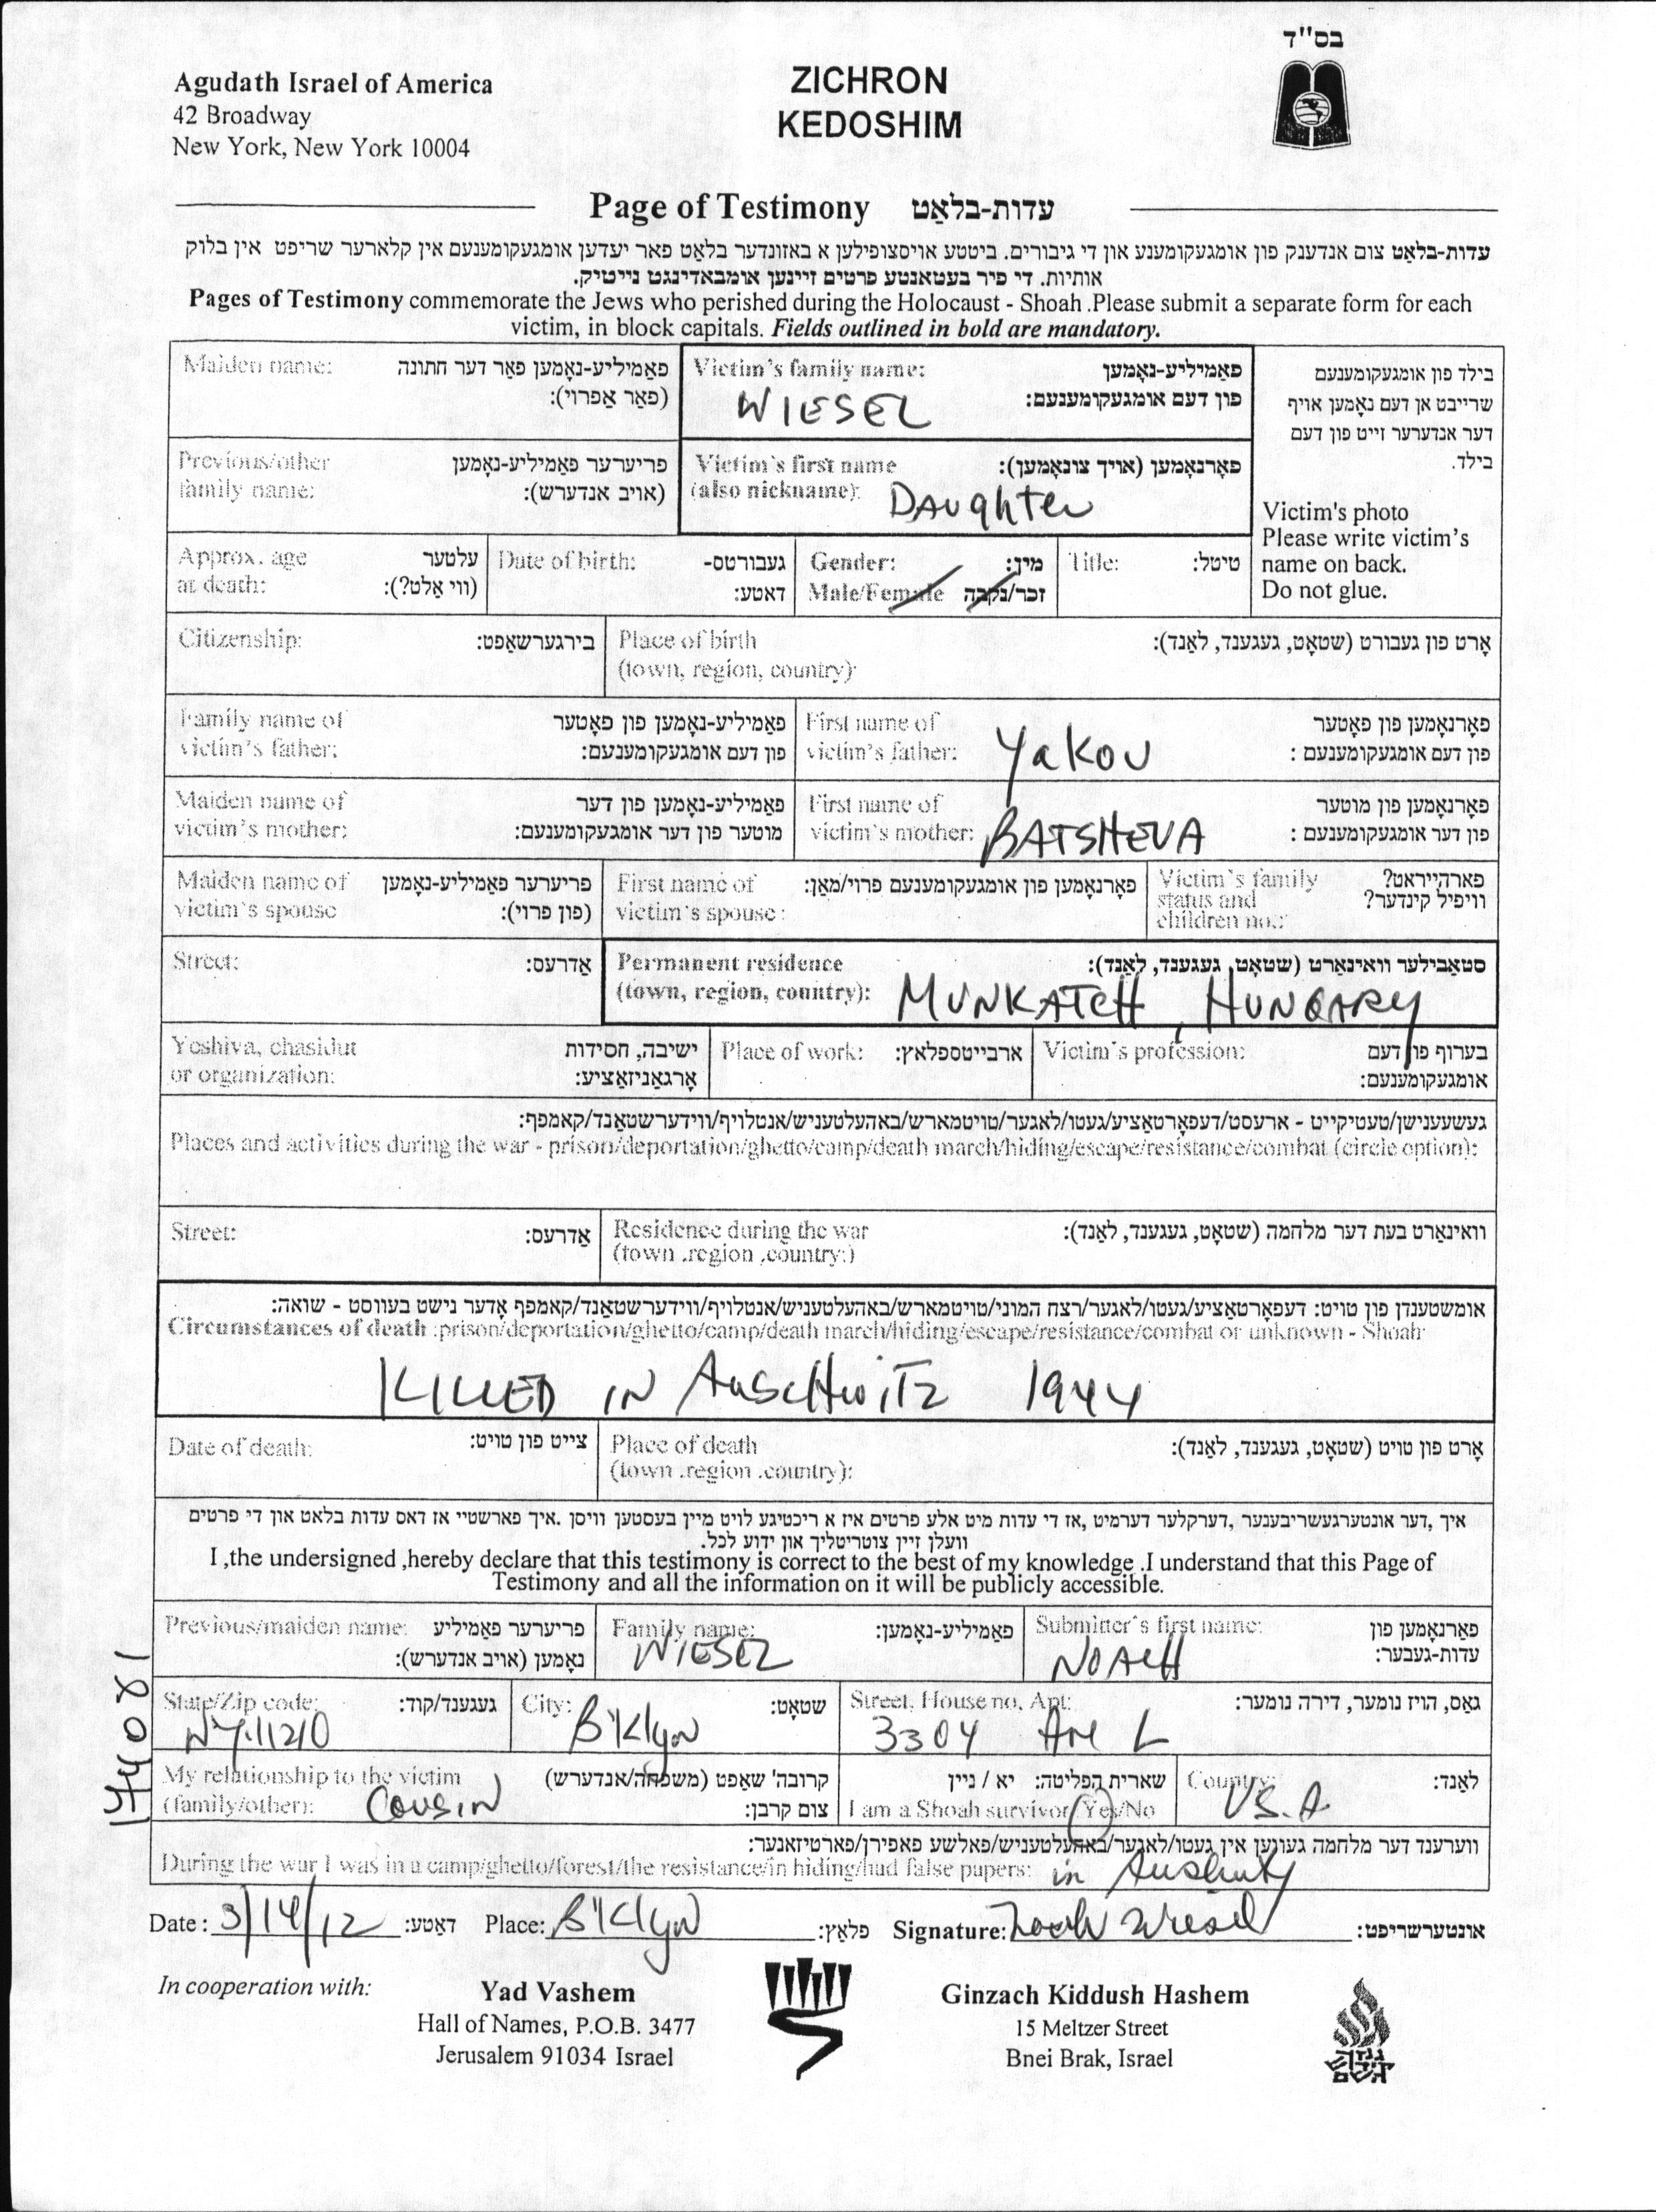 בס"ד
Agudath Israel of America
42 Broadway
New York, New York 10004
ZICHRON
KEDOSHIM
Page of Testimony עדות-בלאַט
עדות-בלאַט צום אנדענק פון אומגעקומענע און די גיבורים. ביטטע אויסצופילען א באזונדער בלאַט פאר יעדען אומגעקומענעם אין קלארער שריפט אין בלוק
אותיות. די פיר בעטאנטע פרטים זיינען אומבאדינגט נייטיק.
Pages of Testimony commemorate the Jews who perished during the Holocaust - Shoah .Please submit a separate form for each
victim, in block capitals. Fields outlined in bold are mandatory.
Maiden name: פאַמיליע-נאָמען פאַר דער חתונה
(פאַר אַפרוי):
Victim's family name: פאַמיליע-נאָמען
פון דעם אומגעקומענעם:
WIESEL
בילד פון אומגעקומענעם
שרייבט אן דעם נאָמען אויף
דער אנדערער זייט פון דעם
בילד.
Victim's photo
Please write victim's
name on back.
Do not glue.
Previous/other פריערער פאַמיליע-נאָמען
family name: (אויב אנדערש):
Victim's first name פאָרנאָמען (אויך צונאָמען):
(also nickname): Daughter
Approx. age עלטער
at death: (ווי אַלט?):
Date of birth: געבורטס-
דאטע:
Gender: מין:
Male/Female זכר/נקבה
Title: טיטל:
Citizenship: בירגערשאַפט:
Place of birth אָרט פון געבורט (שטאָט, געגענד, לאַנד):
(town, region, country):
Family name of פאַמיליע-נאָמען פון פאָטער
victim's father: פון דעם אומגעקומענעם:
First name of פאָרנאָמען פון פאָטער
victim's father: Yakov פון דעם אומגעקומענעם :
Maiden name of פאַמיליע-נאָמען פון דער
victim's mother: מוטער פון דער אומגעקומענעם:
First name of פאָרנאָמען פון מוטער
victim's mother: BATSHEVA פון דער אומגעקומענעם :
Maiden name of פריערער פאַמיליע-נאָמען
victim's spouse (פון פרוי):
First name of פאָרנאָמען פון אומגעקומענעם פרוי/מאַן:
victim's spouse :
Victim's family פארהייראט?
status and וויפיל קינדער?
children no.:
Street: אַדרעס:
Permanent residence סטאַבילער וואינאַרט (שטאָט, געגענד, לאַנד):
(town, region, country): MUNKATCH, HUNGARY
Yeshiva, chasidut ישיבה, חסידות
or organization: אָרגאַניזאַציע:
Place of work: ארבייטספלאץ:
Victim's profession: בערוף פון דעם
אומגעקומענעם:
געשעענישן/טעטיקייט - ארעסט/דעפאָרטאַציע/געטו/לאגער/טויטמארש/באהעלטעניש/אנטלויף/ווידערשטאַנד/קאמפף:
Places and activities during the war - prison/deportation/ghetto/camp/death march/hiding/escape/resistance/combat (circle option):
Street: אַדרעס:
Residence during the war וואינאַרט בעת דער מלחמה (שטאָט, געגענד, לאַנד):
(town .region .country:)
אומשטענדן פון טויט: דעפאָרטאַציע/געטו/לאגער/רצח המוני/טויטמארש/באהעלטעניש/אנטלויף/ווידערשטאַנד/קאמפף אָדער נישט בעוווסט - שואה:
Circumstances of death :prison/deportation/ghetto/camp/death march/hiding/escape/resistance/combat or unknown - Shoah
KILLED IN AuscHwiTz 1944
Date of death: צייט פון טויט:
Place of death אָרט פון טויט (שטאָט, געגענד, לאַנד):
(town .region .country):
איך ,דער אונטערגעשריבענער ,דערקלער דערמיט ,אז די עדות מיט אלע פרטים איז א ריכטיגע לויט מיין בעסטען וויסן .איך פארשטיי אז דאס עדות בלאט און די פרטים
וועלן זיין צוטריטליך און ידוע לכל.
I ,the undersigned ,hereby declare that this testimony is correct to the best of my knowledge .I understand that this Page of
Testimony and all the information on it will be publicly accessible.
Previous/maiden name: פריערער פאַמיליע
נאָמען (אויב אנדערש):
Family name: פאַמיליע-נאָמען:
WIESEL
Submitter's first name: פאָרנאָמען פון
NOACH עדות-געבער:
State/Zip code: געגענד/קוד:
NY.11210
City: שטאָט:
B'klyn
Street, House no, Apt: גאַס, הויז נומער, דירה נומער:
3304 Ave L
My relationship to the victim קרובה' שאַפט (משפּחה/אנדערש)
(family/other): COUSIN צום קרבן:
שארית הפליטה: יא / ניין
I am a Shoah survivor Yes/No
Country: לאַנד:
U.S.A
ווערענד דער מלחמה געווען אין געטו/לאגער/באהעלטעניש/פאלשע פאפירן/פארטיזאנער:
During the war I was in a camp/ghetto/forest/the resistance/in hiding/had false papers: in
Date : 3/14/12 דאַטע: Place: B'klyn פלאַץ: Signature: Noach Wiesel אונטערשריפט:
174081
In cooperation with:
Yad Vashem
Hall of Names, P.O.B. 3477
Jerusalem 91034 Israel
Ginzach Kiddush Hashem
15 Meltzer Street
Bnei Brak, Israel
גנזך
קידוש
השם